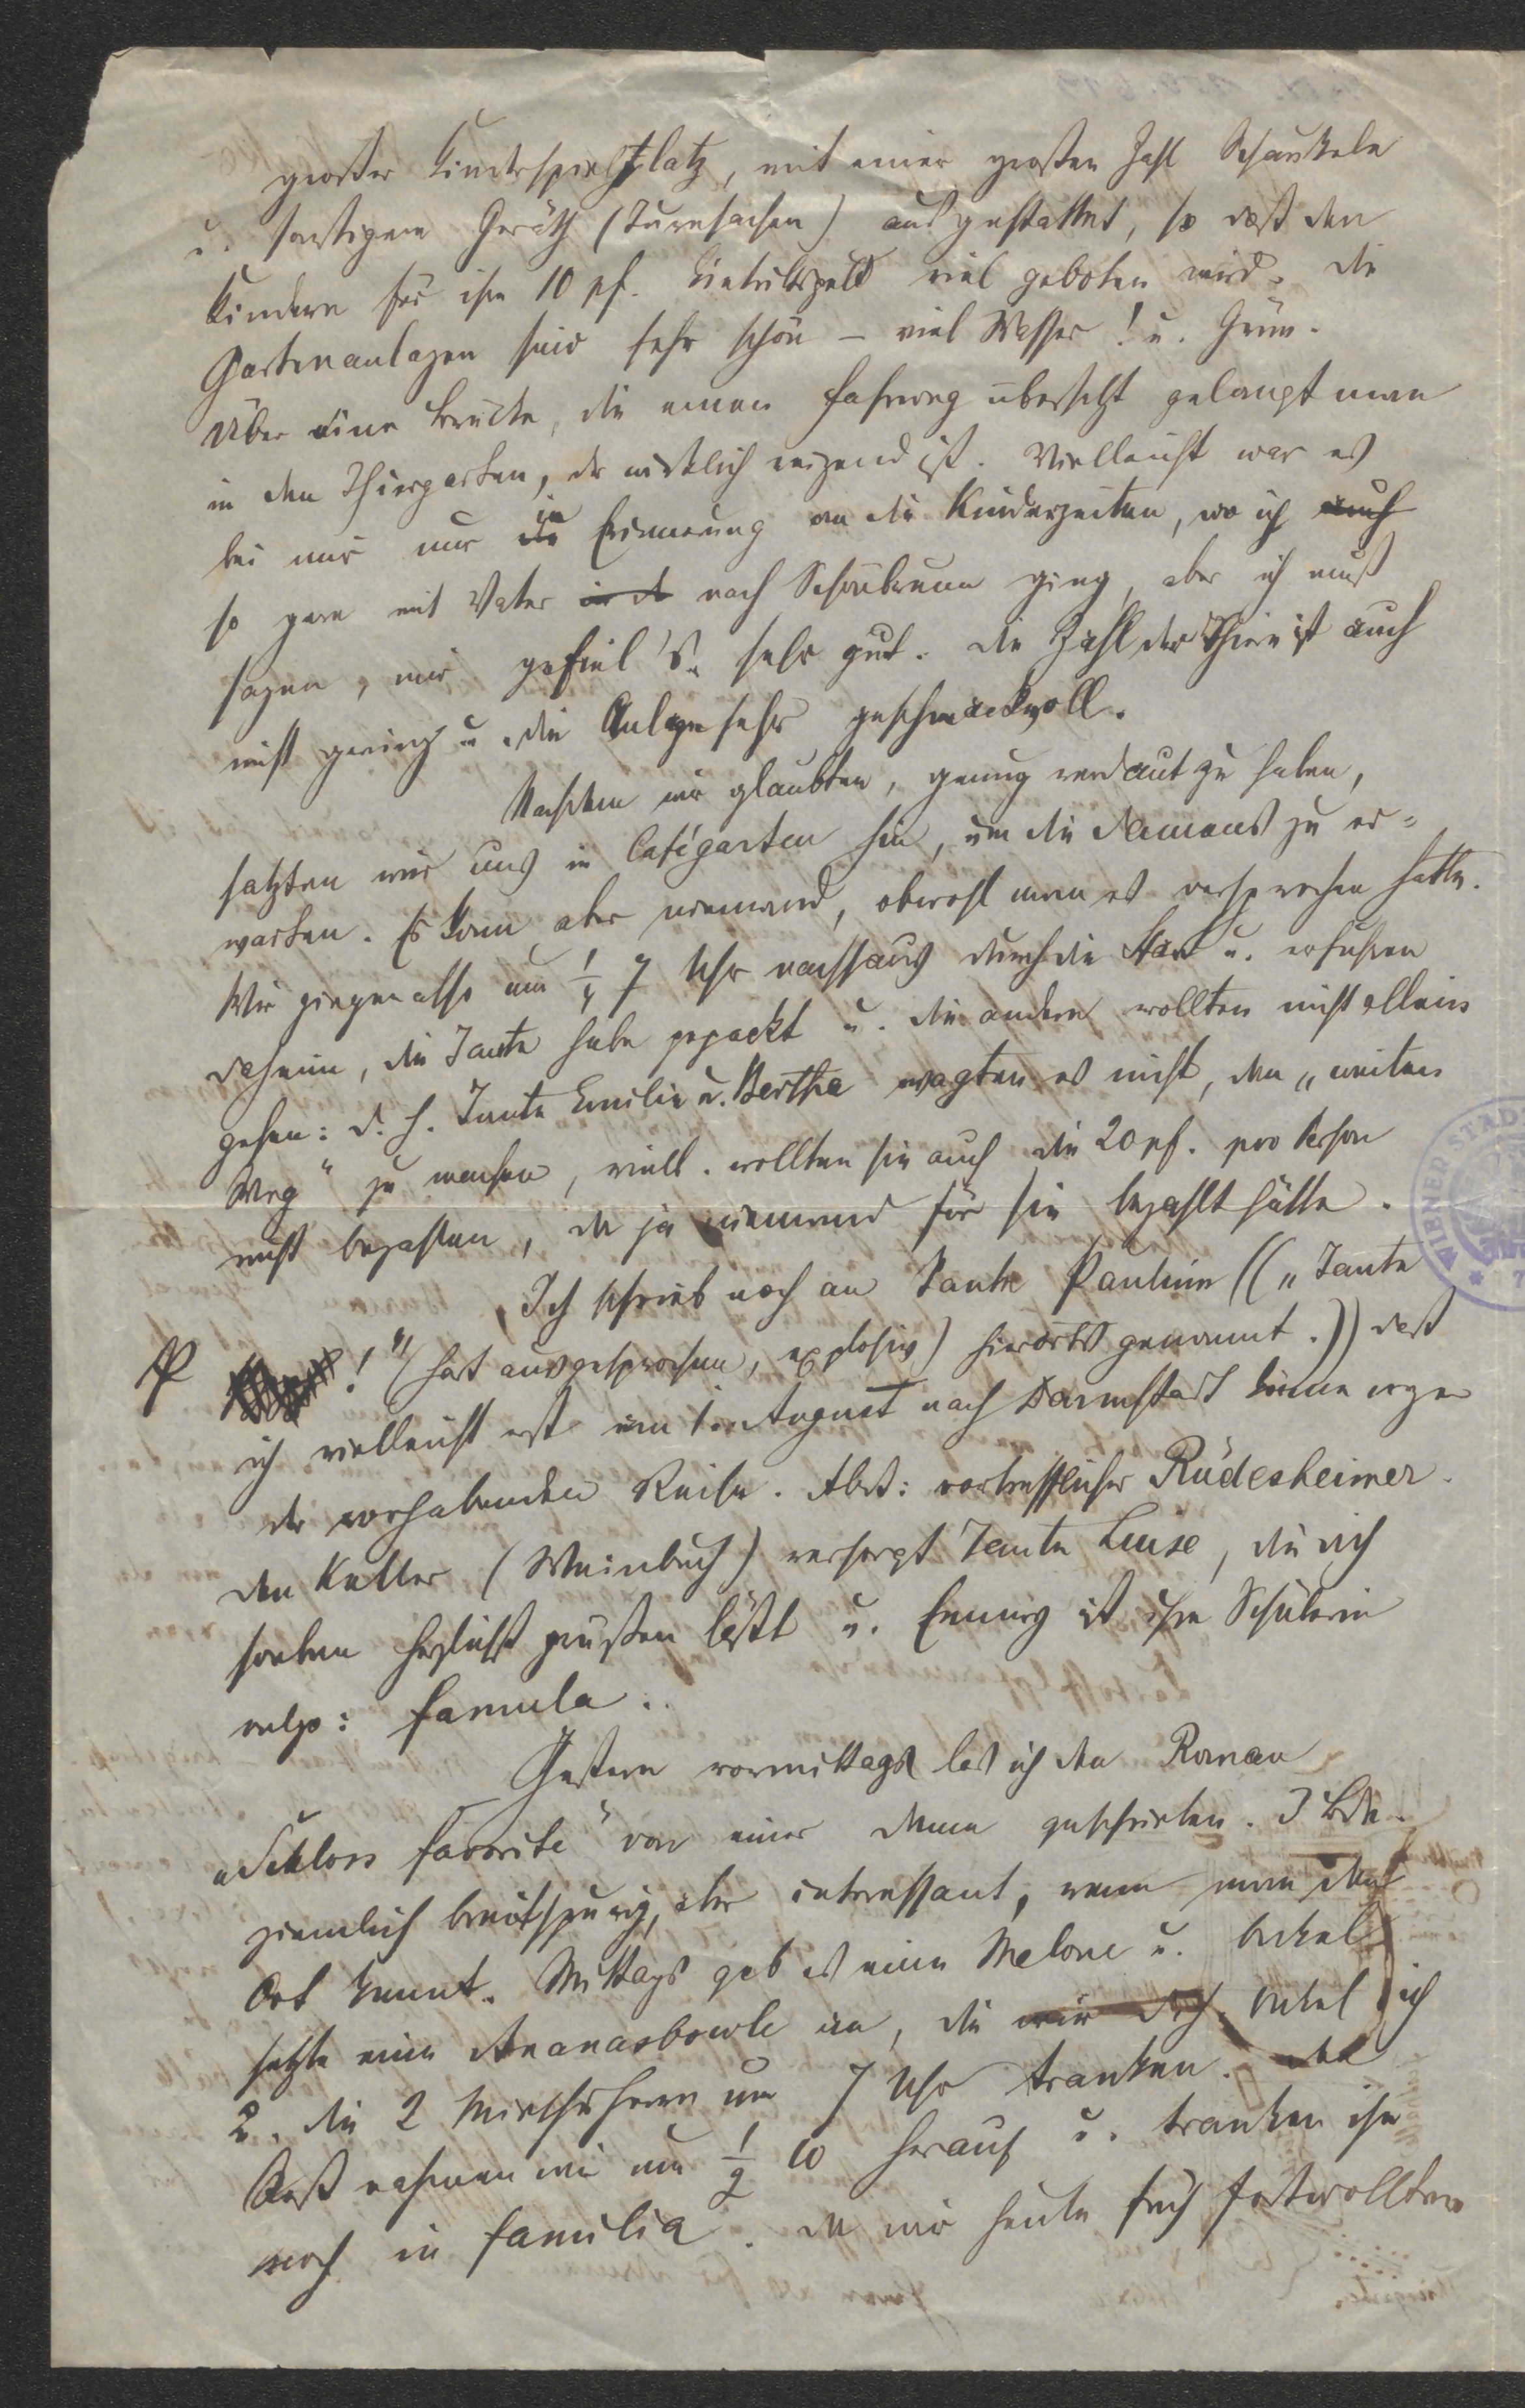 großer Kinderspielplatz, mit einer großen Zahl Schaukeln
u. sonstigem Geräth (Turnsachen) ausgestattet, so daß den
Kindern für ihre 10 pf. Eintrittsgeld viel geboten wird. Die
Gartenanlagen sind sehr schön – viel Wasser! u. Grün.
Über eine Brücke, die einen Fahrweg übersetzt gelangt man
in den Thiergarten, der wirklich reizend ist. Vielleicht war es
bei mir nur die in Erinnerung an die Kinderzeiten, wo ich auch
so gern mit Vater nach Schönbrunn ging, aber ich muß
sagen, mir gefiel's sehr gut. Die Zahl der Thiere ist auch
nicht gering u. die Anlage sehr geschmackvoll.
Nachdem wir glaubten, genug verdaut zu haben,
setzten wir uns in Cafégarten hin, um die Damens zu er=
warten. Es kam aber niemand, obwohl man es versprochen hatte.
Wir gingen also um 1/4 7 Uhr nachhaus durch die Stadt u. erfuhren
daheim, die Tante habe gepackt u. die andern wollten nicht allein
gehen: d. h. Tante Emilie u. Bertha wagten es nicht, den „weiten
Weg“ zu machen, viell. wollten sie auch die 20 pf. pro Person
nicht bezahlen, da ja niemand für sie bezahlt hätte.
Ich schrieb noch an Tante Pauline ((„Tante
P !“ (hart ausgesprochen, explosiv) hierorts genannt.)) daß
ich vielleicht erst am 1. August nach Darmstadt komme wegen
der vorhabenden Reise. Abds: vortrefflicher Rüdesheimer.
Den Keller (Weinbuch) versorgt Tante Luise, die dich
soeben herzlichst grüßen läßt u. Emmy ist ihre Schülerin
resp: famula.
Gestern vormittags las ich den Roman
„Schloss Favorite“ von einer Dame geschrieben. 3 Bde.
ziemlich breitspurig, aber interessant, wenn man den
Ort kennt. Mittags gab es eine Melone u. Onkel
setzte eine Ananasbowle an, die wir Onkel, ich
u. die 2 Miethsherrn um 7 Uhr tranken. Den
Rest nahmen wir um 1/2 10 herauf u. tranken ihn
noch in familia. Da wir heute früh fortwollten
WIENER STAD